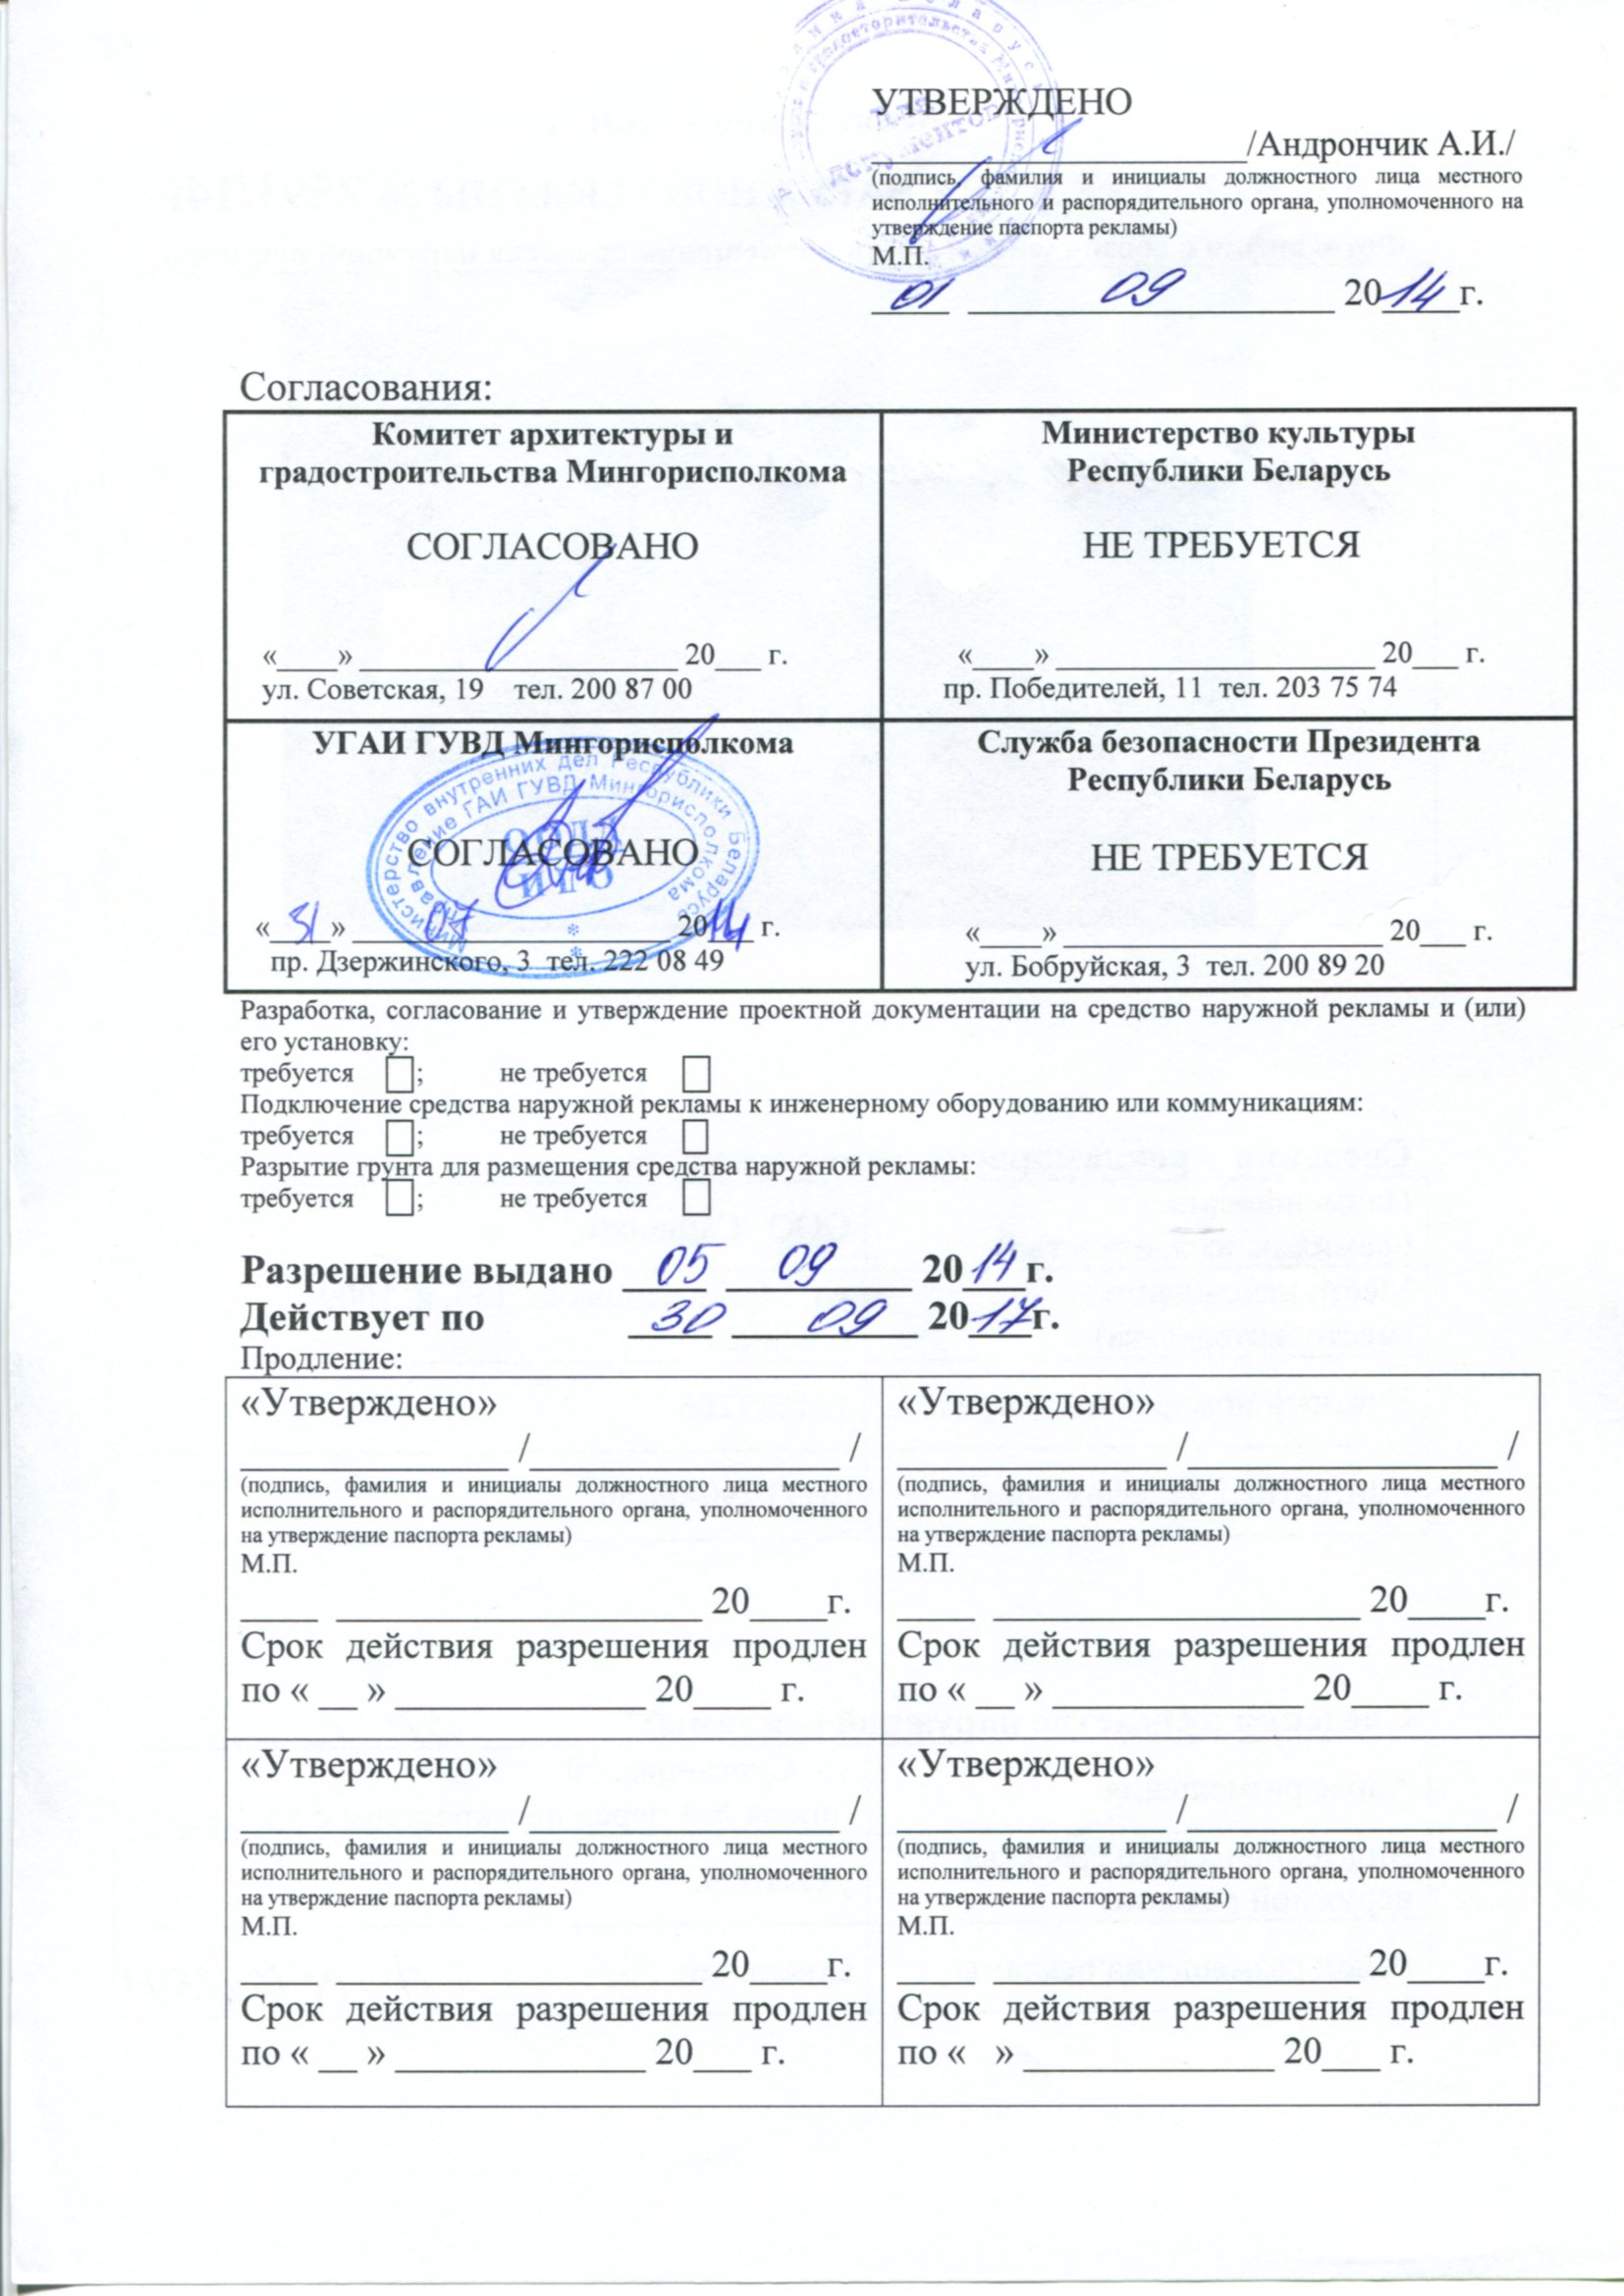 УТВЕРЖДЕНО
____________________/Андрончик А.И./
(подпись, фамилия и инициалы должностного лица местного
исполнительного и распорядительного органа, уполномоченного на
утверждение паспорта рекламы)
М.П.
01 09 2014 г.
Согласования:
Комитет архитектуры и
градостроительства Мингорисполкома
СОГЛАСОВАНО
«____» _____________________ 20___ г.
ул. Советская, 19 тел. 200 87 00
Министерство культуры
Республики Беларусь
НЕ ТРЕБУЕТСЯ
«____» _____________________ 20___ г.
пр. Победителей, 11 тел. 203 75 74
УГАИ ГУВД Мингорисполкома
Министерство внутренних дел Республики Беларусь
Управление ГАИ ГУВД Мингорисполкома
СОГЛАСОВАНО
«31» 07 2014 г.
пр. Дзержинского, 3 тел. 222 08 49
Служба безопасности Президента
Республики Беларусь
НЕ ТРЕБУЕТСЯ
«____» _____________________ 20___ г.
ул. Бобруйская, 3 тел. 200 89 20
Разработка, согласование и утверждение проектной документации на средство наружной рекламы и (или)
его установку:
требуется ☐; не требуется ☐
Подключение средства наружной рекламы к инженерному оборудованию или коммуникациям:
требуется ☐; не требуется ☐
Разрытие грунта для размещения средства наружной рекламы:
требуется ☐; не требуется ☐
Разрешение выдано 05 09 2014 г.
Действует по 30 09 2017 г.
Продление:
«Утверждено»
______________ /________________ /
(подпись, фамилия и инициалы должностного лица местного
исполнительного и распорядительного органа, уполномоченного
на утверждение паспорта рекламы)
М.П.
____ ___________________ 20____г.
Срок действия разрешения продлен
по « __ » _____________ 20____ г.
«Утверждено»
______________ /________________ /
(подпись, фамилия и инициалы должностного лица местного
исполнительного и распорядительного органа, уполномоченного
на утверждение паспорта рекламы)
М.П.
____ ___________________ 20____г.
Срок действия разрешения продлен
по « __ » _____________ 20____ г.
«Утверждено»
______________ /________________ /
(подпись, фамилия и инициалы должностного лица местного
исполнительного и распорядительного органа, уполномоченного
на утверждение паспорта рекламы)
М.П.
____ ___________________ 20____г.
Срок действия разрешения продлен
по « __ » _____________ 20___ г.
«Утверждено»
______________ /________________ /
(подпись, фамилия и инициалы должностного лица местного
исполнительного и распорядительного органа, уполномоченного
на утверждение паспорта рекламы)
М.П.
____ ___________________ 20____г.
Срок действия разрешения продлен
по « » _____________ 20___ г.